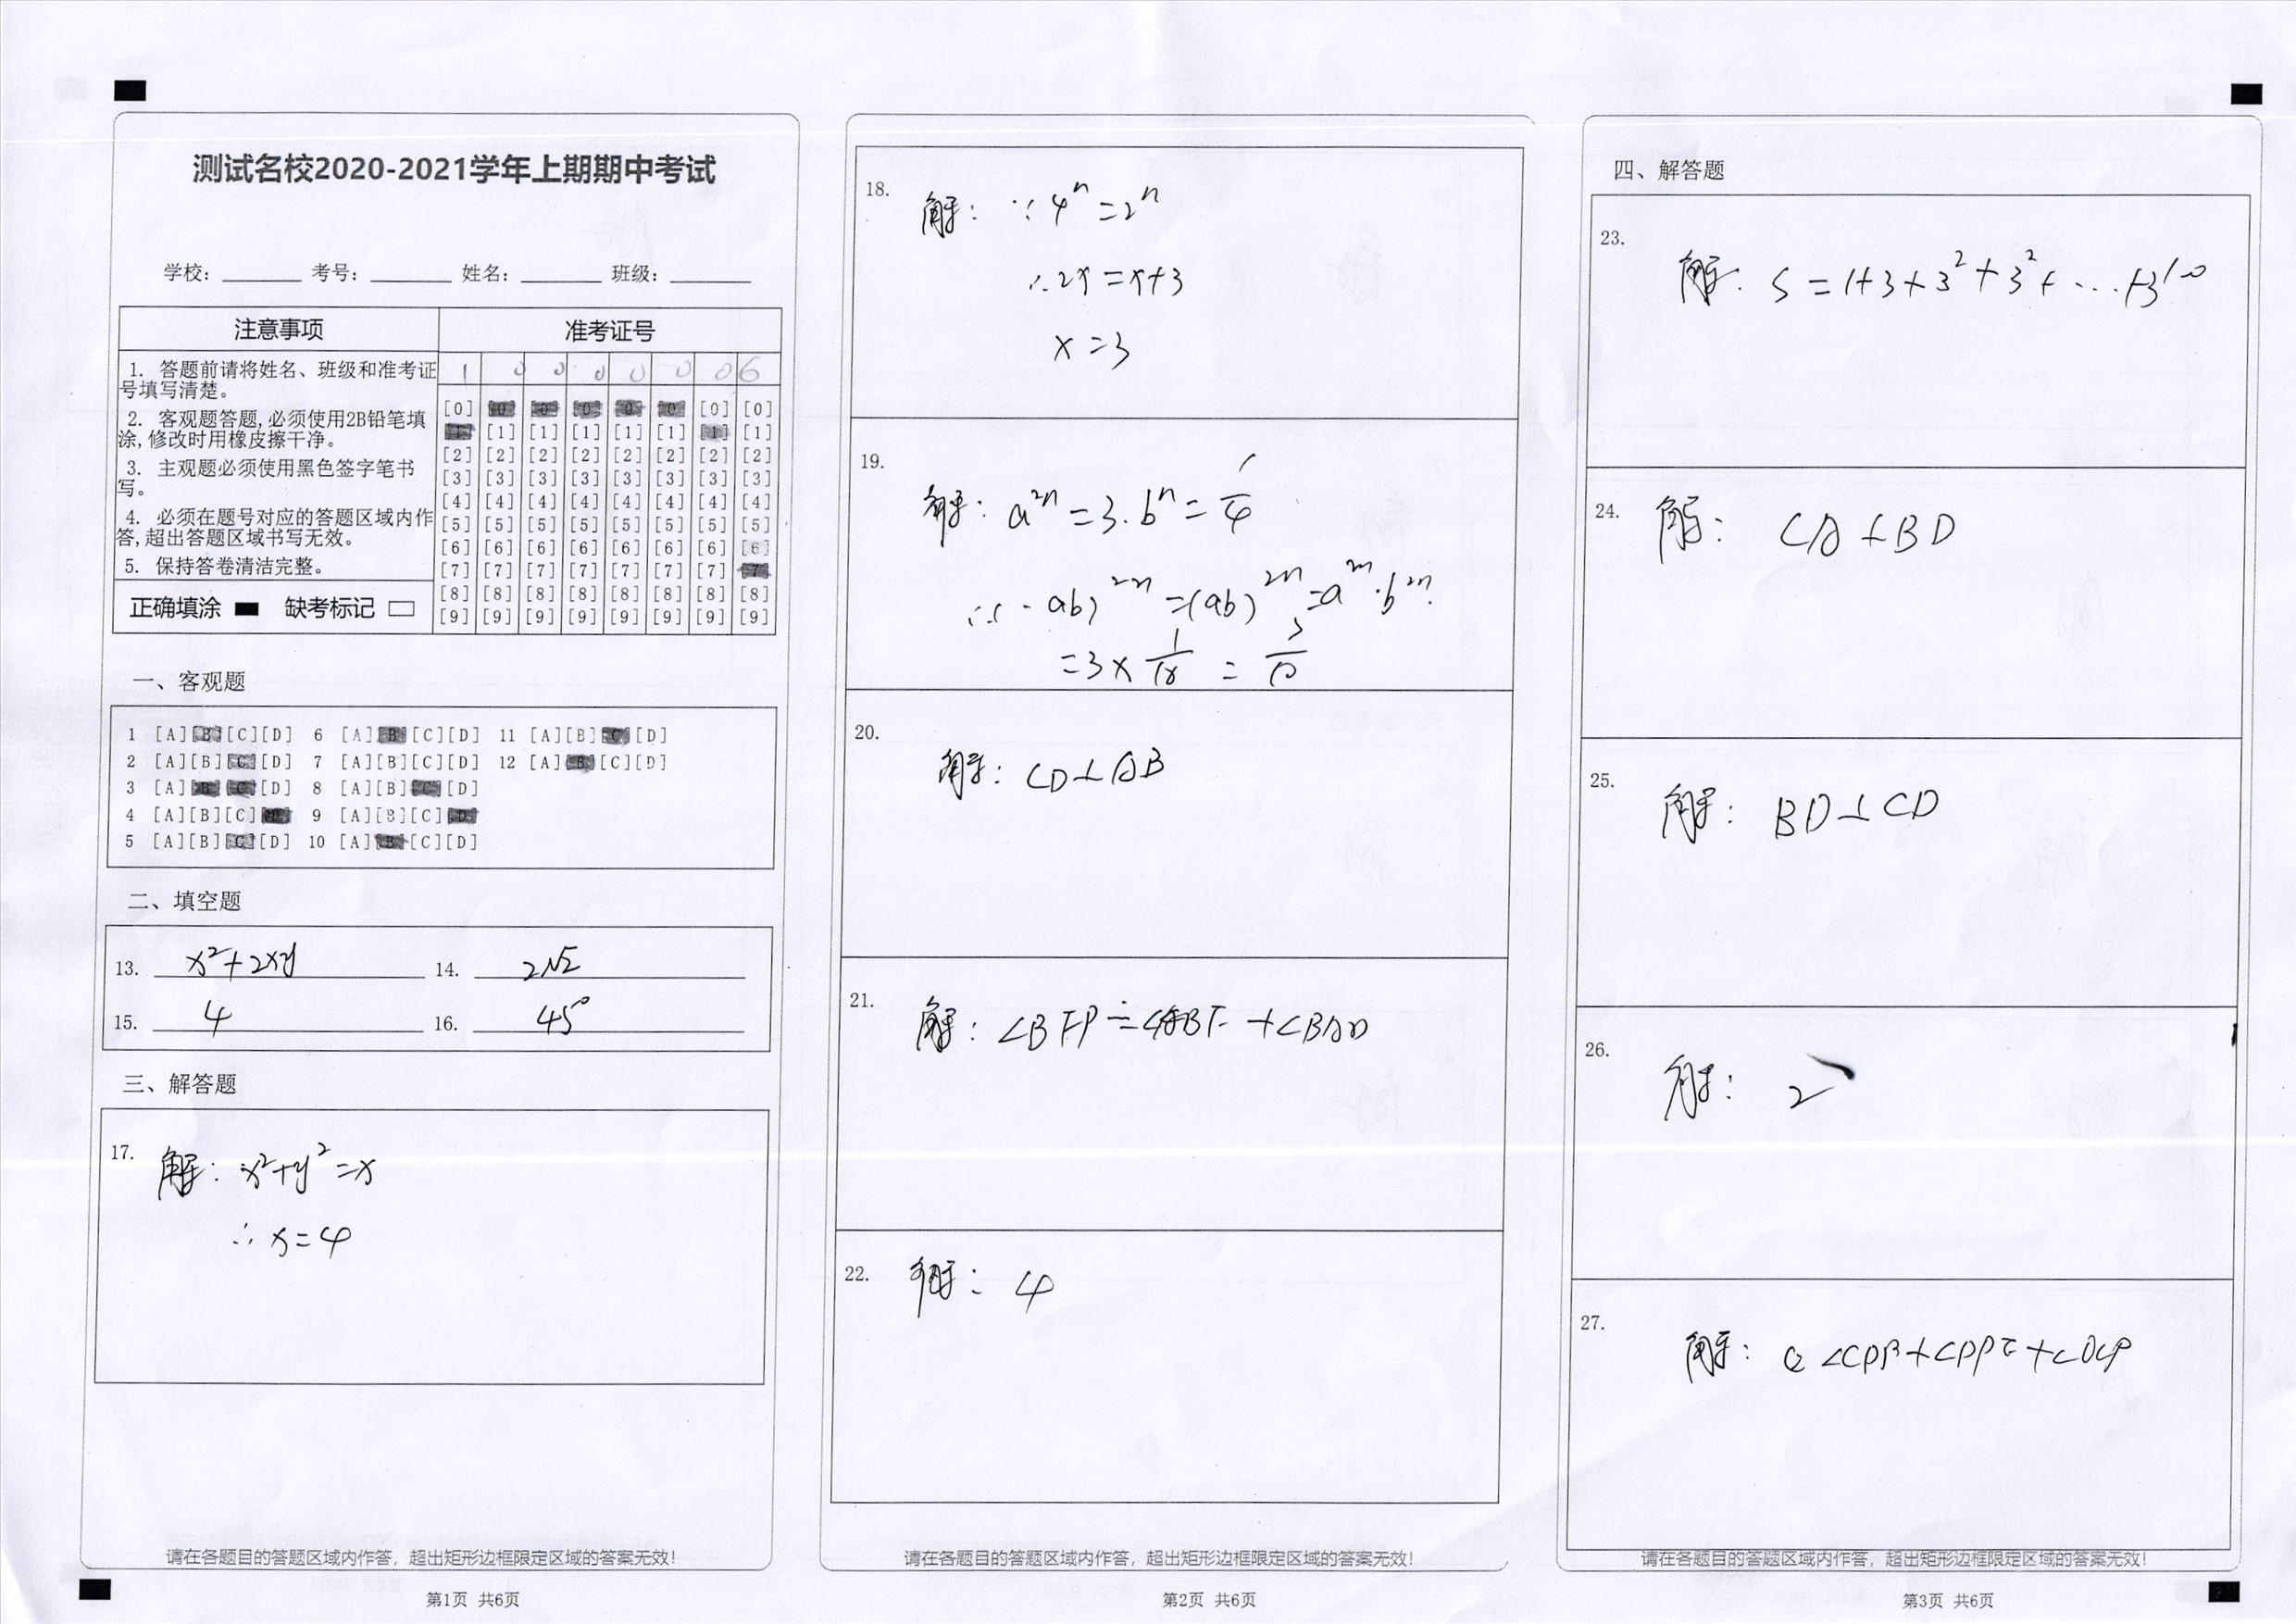 测试名校2020-2021学年上期期中考试
学校: 考号: 姓名: 班级:
注意事项
1. 答题前请将姓名、班级和准考证
号填写清楚。
2. 客观题答题,必须使用2B铅笔填
涂,修改时用橡皮擦干净。
3. 主观题必须使用黑色签字笔书
写。
4. 必须在题号对应的答题区域内作
答,超出答题区域书写无效。
5. 保持答卷清洁完整。
正确填涂 缺考标记
准考证号
1 0 0 0 0 0 0 6
[0] [0] [0] [0] [0] [0] [0] [0]
[1] [1] [1] [1] [1] [1] [1] [1]
[2] [2] [2] [2] [2] [2] [2] [2]
[3] [3] [3] [3] [3] [3] [3] [3]
[4] [4] [4] [4] [4] [4] [4] [4]
[5] [5] [5] [5] [5] [5] [5] [5]
[6] [6] [6] [6] [6] [6] [6] [6]
[7] [7] [7] [7] [7] [7] [7] [7]
[8] [8] [8] [8] [8] [8] [8] [8]
[9] [9] [9] [9] [9] [9] [9] [9]
一、客观题
1 [A][B][C][D] 6 [A][B][C][D] 11 [A][B][C][D]
2 [A][B][C][D] 7 [A][B][C][D] 12 [A][B][C][D]
3 [A][B][C][D] 8 [A][B][C][D]
4 [A][B][C][D] 9 [A][B][C][D]
5 [A][B][C][D] 10 [A][B][C][D]
二、填空题
13. x²+2xy 14. 2√2
15. 4 16. 45°
三、解答题
17. 解: x²+y²=x
∴ x=4
请在各题目的答题区域内作答，超出矩形边框限定区域的答案无效!
第1页 共6页
18. 解: ∵ 4ⁿ=2ⁿ
∴2x=x+3
x=3
19. 解: a²ⁿ=3. bⁿ=1/4
∴(-ab)²ⁿ=(ab)²ⁿ=a²ⁿ·b²ⁿ
=3×1/18=
20. 解: CD⊥AB
21. 解: ∠BFP=∠ABF+∠BAD
22. 解: 4
请在各题目的答题区域内作答，超出矩形边框限定区域的答案无效!
第2页 共6页
四、解答题
23. 解: S=1+3+3²+3²+…+3¹⁰
24. 解: CA⊥BD
25. 解: BD⊥CD
26. 解: 2
27. 解: ∠CPB+∠DPE+∠DCP
请在各题目的答题区域内作答，超出矩形边框限定区域的答案无效!
第3页 共6页